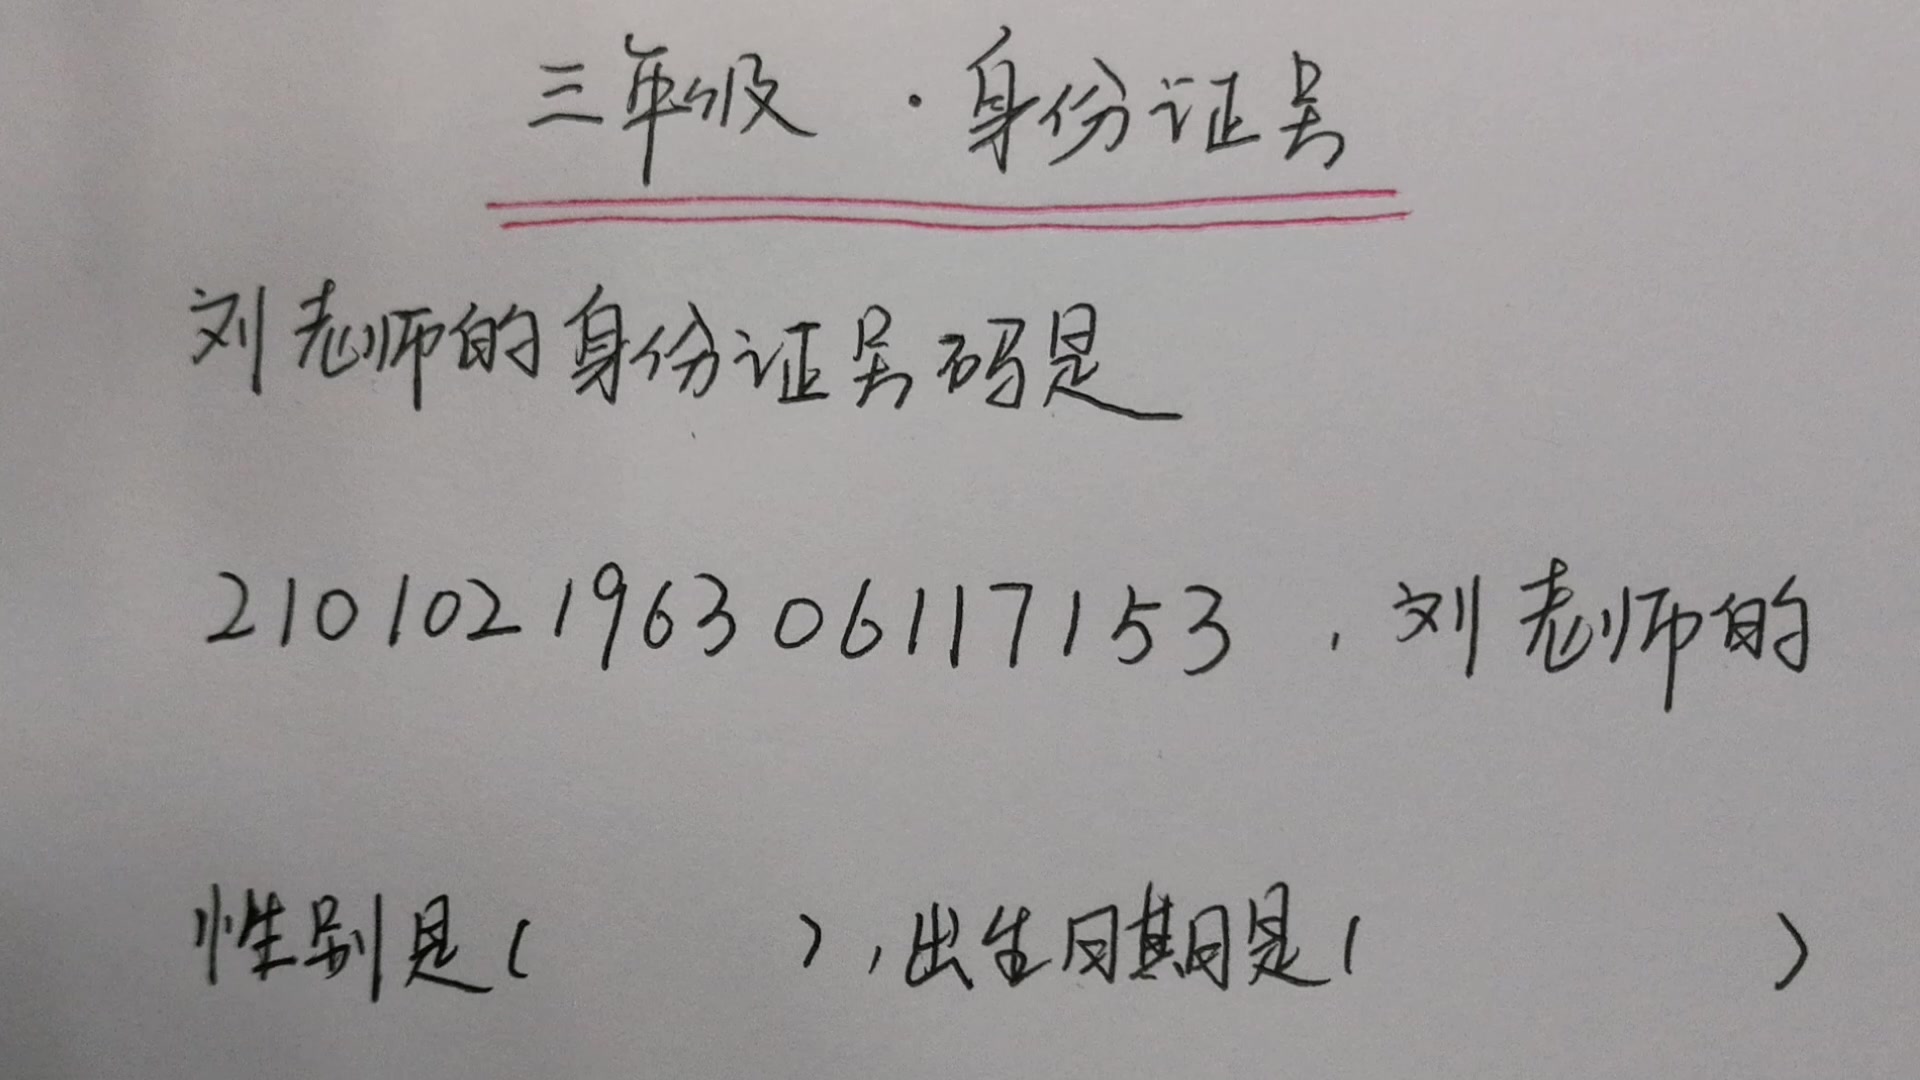 三年级·身份证号
刘老师的身份证号码是
210102196306117153，刘老师的
性别是(    )，出生日期是(    )